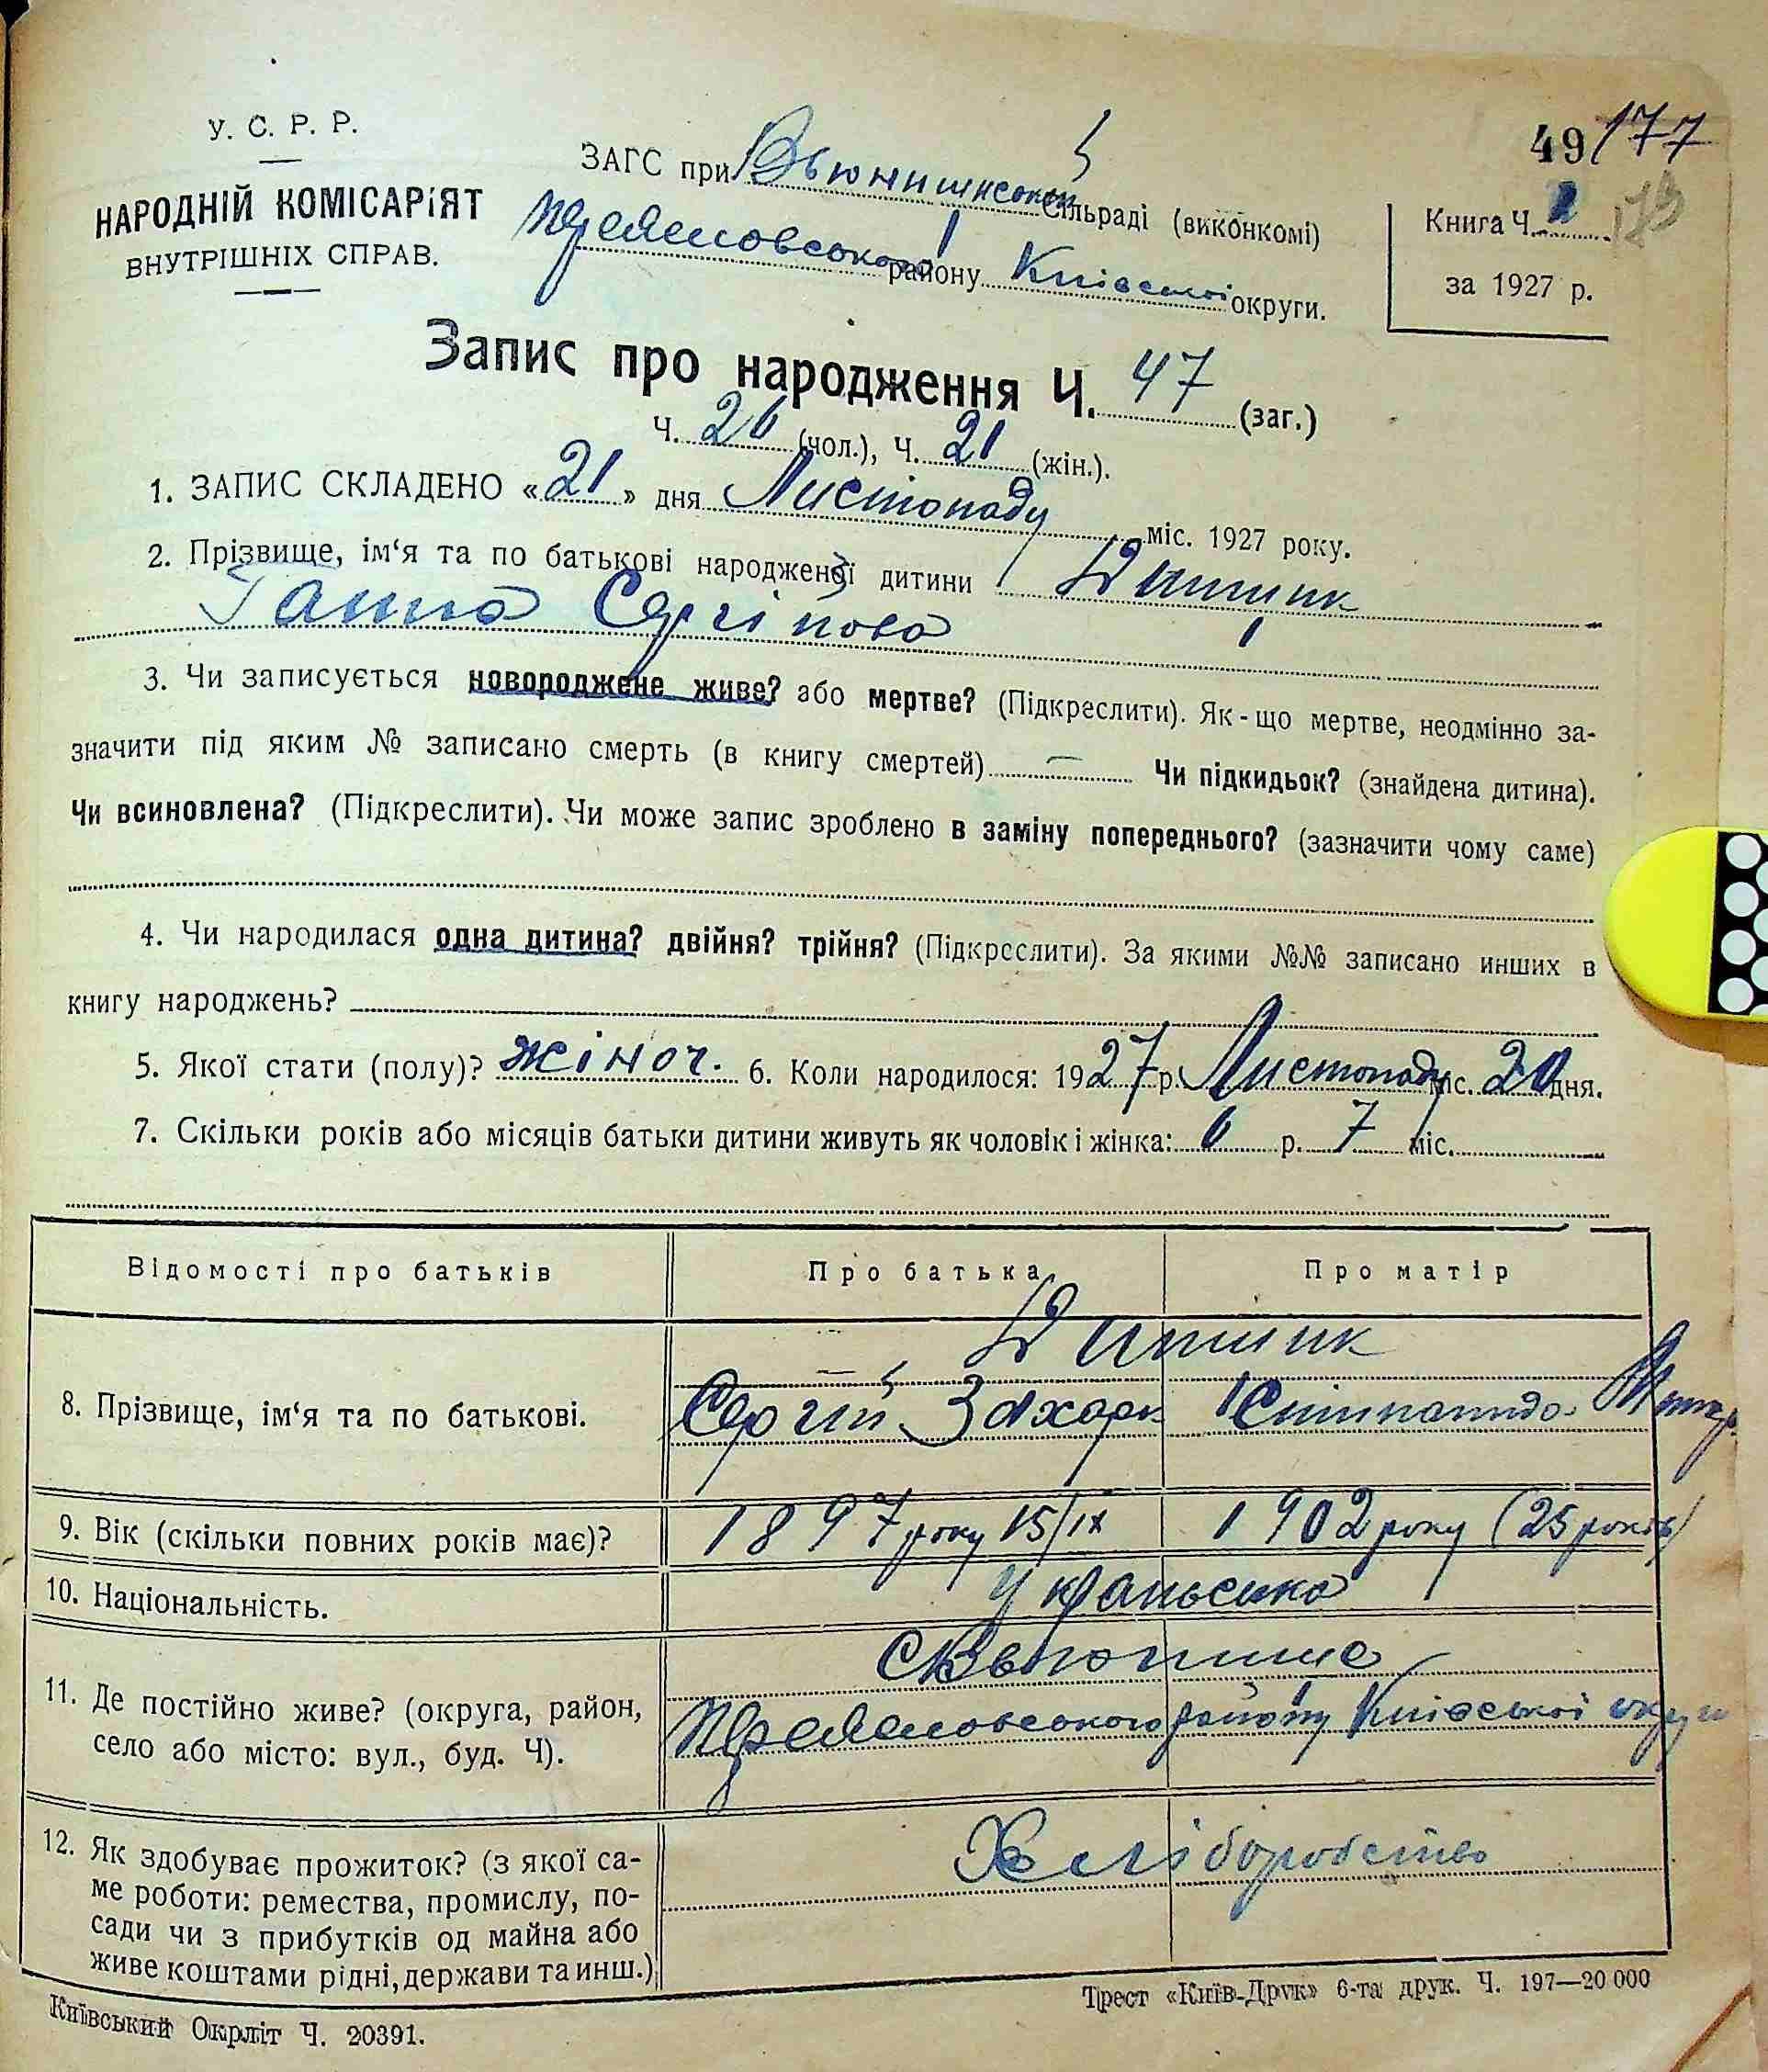 У. С. Р. Р.
НАРОДНІЙ КОМІСАРІЯТ
ВНУТРІШНІХ СПРАВ.
ЗАГС при Вьюнишнській сільраді (виконкомі)
району Київської округи.
49 177
Книга Ч. 173
за 1927 р.
Запис про народження Ч. 47 (заг.)
Ч. 26 (чол.), Ч. 21 (жін.).
1. ЗАПИС СКЛАДЕНО «21» дня Листопаду міс. 1927 року.
2. Прізвище, ім‘я та по батькові народженої дитини
Ганна Сергіївна
3. Чи записується новороджене живе? або мертве? (Підкреслити). Як-що мертве, неодмінно за-
значити під яким № записано смерть (в книгу смертей) — Чи підкидьок? (знайдена дитина).
Чи всиновлена? (Підкреслити). Чи може запис зроблено в заміну попереднього? (зазначити чому саме)
4. Чи народилася одна дитина? двійня? трійня? (Підкреслити). За якими №№ записано инших в
книгу народжень?
5. Якої стати (полу)? жіноч. 6. Коли народилося: 1927 р. Листопаду міс. 20 дня.
7. Скільки років або місяців батьки дитини живуть як чоловік і жінка: 6 р. 7 міс.
Відомості про батьків Про батька Про матір
8. Прізвище, ім‘я та по батькові.
Сергій Захарк
9. Вік (скільки повних років має)? 1897 року 15/IX 1902 року (25 років)
10. Національність. Українська
11. Де постійно живе? (округа, район,
село або місто: вул., буд. Ч).
району Київської округи
12. Як здобуває прожиток? (з якої са-
ме роботи: ремества, промислу, по-
сади чи з прибутків од майна або
живе коштами рідні, держави та инш.)
Хліборобство
Київський Окрліт Ч. 20391.
Трест «Київ-Друк» 6-та друк. Ч. 197—20 000